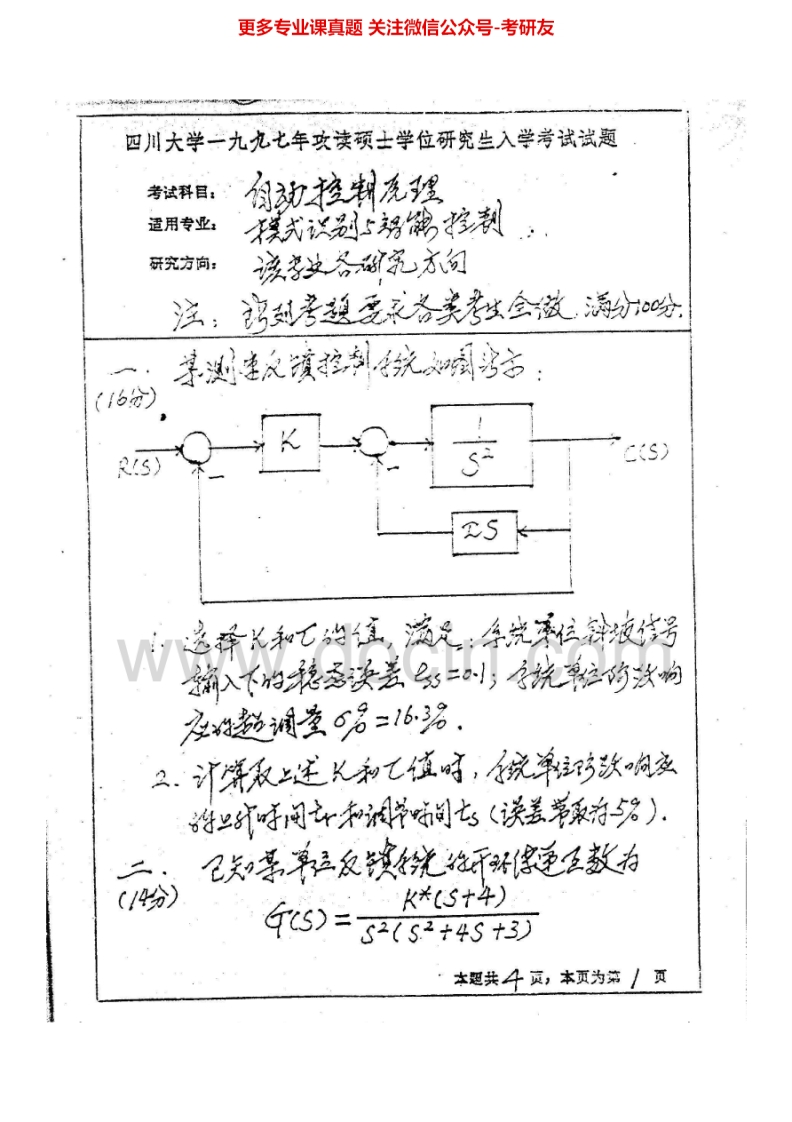 更多专业课真题 关注微信公众号-考研友
四川大学一九九七年攻读硕士学位研究生入学考试试题
考试科目：自动控制原理
适用专业：模式识别与智能控制
研究方向：该专业各研究方向
注：所列考题要求各类考生全做，满分100分．
一．某测速反馈控制系统如图所示：
(16分)
R(S) K 1/S² C(S)
－ －
τS
1. 选择K和τ的值，满足：系统单位斜坡信号
输入下的稳态误差ess=0.1；系统单位阶跃响
应的超调量σ%=16.3%．
2. 计算取上述K和τ值时，系统单位阶跃响应
的上升时间tr和调节时间ts（误差带取为5%）．
二．已知某单位反馈系统的开环传递函数为
(14分)
G(S)=K*(S+4)/S²(S²+4S+3)
本题共4页，本页为第1页
www.docin.com